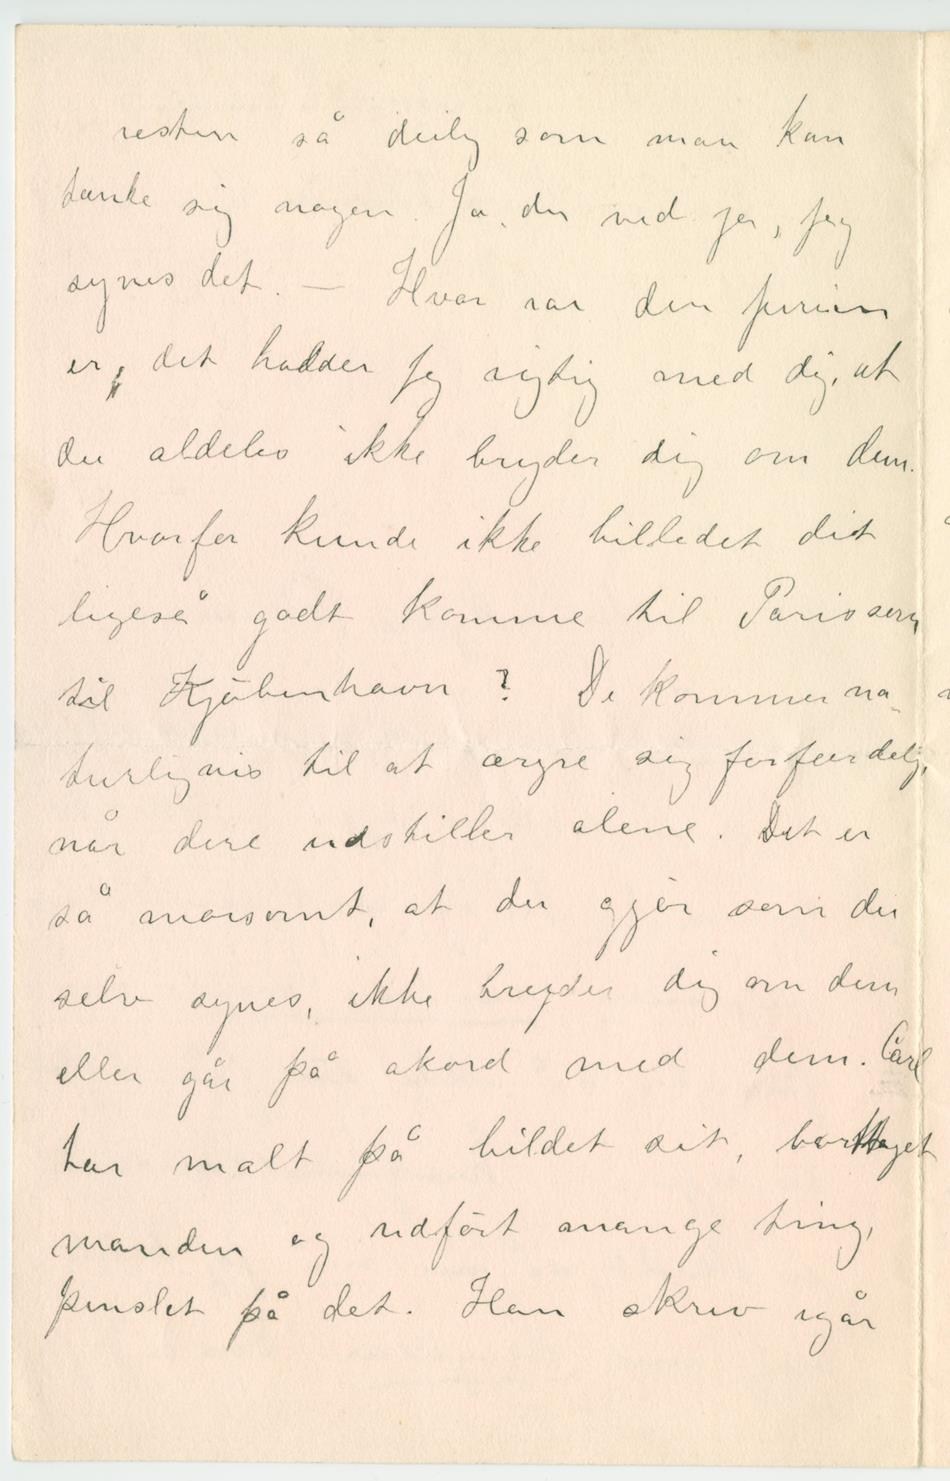 resten så deilig som man kan
tænke sig nogen. Ja, du ved jo, jeg
synes det. — Hvor rar den
er, det holder jeg rigtig med dig, at
du aldeles ikke bryder dig om dem.
Hvorfor kunde ikke billedet dit
ligeså godt komme til Paris som
til Kjøbenhavn? De kommer na-
turligvis til at ærgre sig forfærdelig,
når dere udstiller alene. Det er
så morsomt, at du gjør som du
selv synes, ikke bryder dig om dem
eller går på akord med dem. Carl
har malt på bildet sit, borttaget
manden og udført mange ting,
penslet på det. Han skrev igår